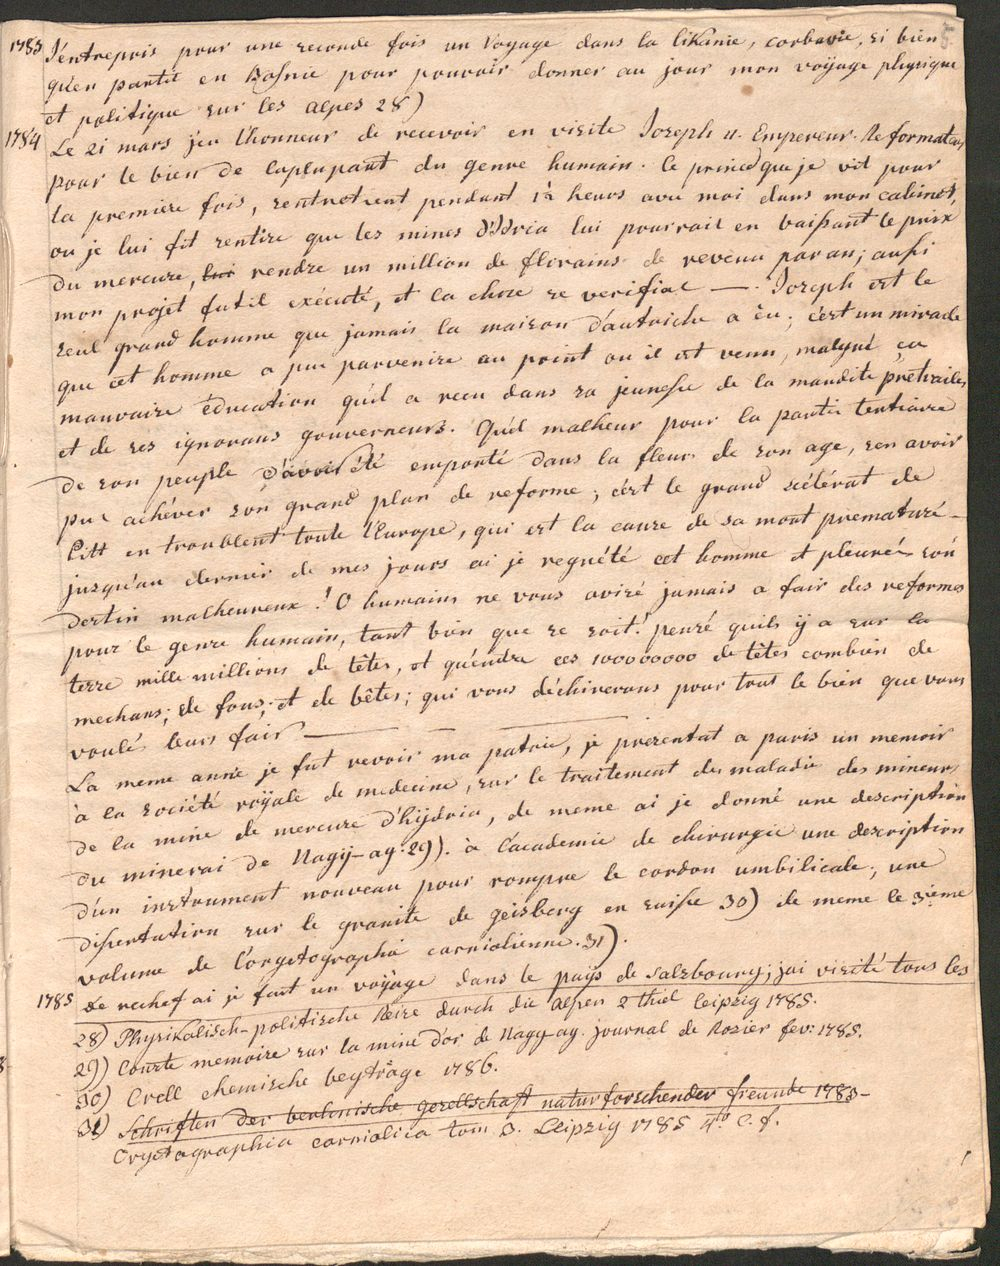 1783 J'entrepris pour une seconde fois un Voyage dans la likanie, corbavie, si bien
qu'en partie en Bosnie pour pouvoir donner au jour mon voyage physique
et politique sur les alpes 28)
1784 Le 21 mars j'eu l'honneur de recevoir en visite Joseph II. Empereur. Reformateur
pour le bien de laplupant du genre humain. Ce prince que je vit pour
la premiere fois, s'entretient pendant heurs avec moi dans mon cabinet,
ou je lui fit sentire que les mines d'Idria lui pourrait en baissant le prix
du mercure, rendre un million de florains de revenu par an; aussi
mon projet futil exécuté, et la chose se verifiat —. Joseph est le
seul grand homme que jamais la maison d'autriche a èu; c'est un miracle
que cet homme a pu parvenire au point ou il est venu, malgré ça
mauvaise éducation qu'il a recu dans sa jeunesse de la maudite pretraile,
et de ses ignorans gouverneurs. Quel malheur pour la partie tentiaire
de son peuple d'avoir été emporté dans la fleur de son age, sen avoir
pu achéver son grand plan de reforme; c'est le grand scélérat de
Pitt en troublent toute l'Europe, qui est la cause de sa mort prematuré —
jusqu'au dernier de mes jours ai je regrété cet homme et pleuré son
destin malheureux! O humains ne vous avisé jamais a fair des reformes
pour le genre humain, tant bien que se soit! pensé quils ÿ a sur la
terre mille millions de têtes, et qu'endre ces 100000000 de têtes combien de
mechans; de fous; et de bêtes; qui vous déchirerons pour tout le bien que vous
voulés leurs fair —
La meme année je fut revoir ma patrie, je presentat a paris un memoir
à la société roÿale de medecine, sur le traitement des maladie des mineur
de la mine de mercure d'hÿdria, de meme ai je donné une description
du minerai de Nagÿ-ag. 29). à l'academie de chirurgie une description
d'un instrument nouveau pour rompre le cordon umbilicale; une
dissertation sur le granite de geisberg en suisse 30) de meme le 3.ieme
volume de l'orÿctographi carniolienne. 31).
1785 de rechef ai je fait un voÿage dans le paÿs de Salzbourg; jai visité tous les
28) Phÿsikalisch-politische Reise durch die alpen 2 thiel Leipzig 1785.
29) Courte memoire sur la mine d'or de Nagy-ag. journal de Rozier fev: 1785.
30) Crell chemische beyträge 1786.
31) Schriften der berlinische gesellschaft naturforschender freunde 1783-
Oryctographia carniolica tom 3. Leipzig 1785 4to c. f.